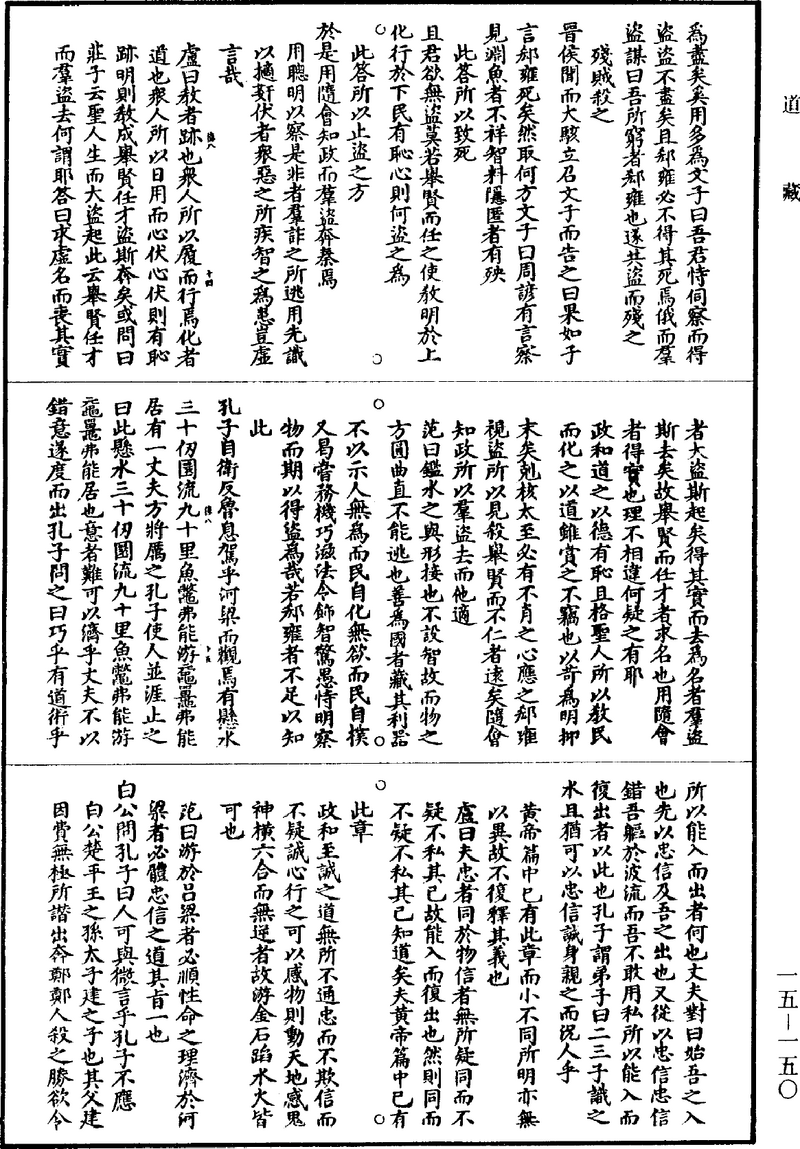 道藏
爲盡矣奚用多爲文子曰吾君恃伺察而得
盜盜不盡矣且郄雍必不得其死焉俄而羣
盜謀曰吾所窮者郄雍也遂共盜而殘之
殘賊殺之
晉侯聞而大駭立召文子而告之曰果如子
言郄雍死矣然取何方文子曰周諺有言察
見淵魚者不祥智料隱匿者有殃
此答所以致死
且君欲無盜莫若舉賢而任之使教明於上
化行於下民有恥心則何盜之爲
此答所以止盜之方
於是用隨會知政而羣盜奔秦焉
用聰明以察是非者羣詐之所逃用先識
以擿姦伏者衆惡之所疾智之爲患豈虛
言哉
盧曰教者跡也衆人所以履而行焉化者
道也衆人所以日用而心伏心伏則有恥
跡明則教成舉賢任才盜斯奔矣或問曰
莊子云聖人生而大盜起此云舉賢任才
而羣盜去何謂耶答曰求虛名而喪其實
者大盜斯起矣得其實而去爲名者羣盜
斯去矣故舉賢而任才者求名也用隨會
者得實也理不相違何疑之有耶
政和道之以德有恥且格聖人所以教民
而化之以道雖賞之不竊也以苛爲明抑
末矣剋核太至必有不肖之心應之郄雍
視盜所以見殺舉賢而不仁者遠矣隨會
知政所以羣盜去而他適
范曰鑑水之與形接也不設智故而物之
方圓曲直不能逃也善爲國者藏其利器
不以示人無爲而民自化無欲而民自樸
又曷嘗務機巧滋法令飾智驚愚恃明察
物而期以得盜爲哉若郄雍者不足以知
此
孔子自衛反魯息駕乎河梁而觀焉有懸水
三十仞圜流九十里魚鼈弗能游黿鼉弗能
居有一丈夫方將厲之孔子使人並涯止之
曰此懸水三十仞圜流九十里魚鼈弗能游
黿鼉弗能居也意者難可以濟乎丈夫不以
錯意遂度而出孔子問之曰巧乎有道術乎
所以能入而出者何也丈夫對曰始吾之入
也先以忠信及吾之出也又從以忠信忠信
錯吾軀於波流而吾不敢用私所以能入而
復出者以此也孔子謂弟子曰二三子識之
水且猶可以忠信誠身親之而況人乎
黃帝篇中已有此章而小不同所明亦無
以異故不復釋其義也
盧曰夫忠者同於物信者無所疑同而不
疑不私其己故能入而復出也然則同而
不疑不私其己知道矣夫黃帝篇中已有
此章
政和至誠之道無所不通忠而不欺信而
不疑誠心行之可以感物則動天地感鬼
神橫六合而無逆者故游金石蹈水火皆
可也
范曰游於呂梁者必順性命之理濟於河
梁者必體忠信之道其首一也
白公問孔子曰人可與微言乎孔子不應
白公楚平王之孫太子建之子也其父建
因費無極所譖出奔鄭鄭人殺之勝欲令
一五—一五〇